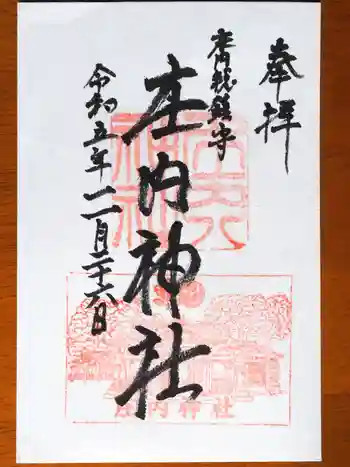 奉拝
庄内総鎮守
庄内神社
令和五年十一月二十六日
庄内神社